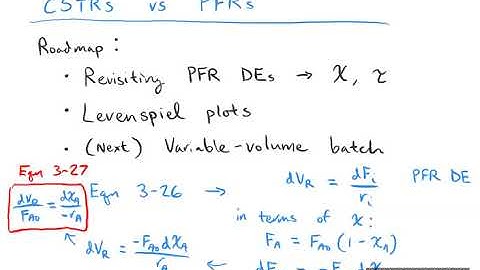 CSTRs vs PFRs
Roadmap:
• Revisiting PFR DEs → X, τ
• Levenspiel plots
• (Next) Variable-volume batch
Eqn 3-27
dV_R/F_A0 = dX_A/-r_A
Eqn 3-26 → dV_R = dF_i/r_i PFR DE
in terms of X:
F_A = F_A0 (1 - X_A)
dV_R = -F_A0 dX_A/r_A ←